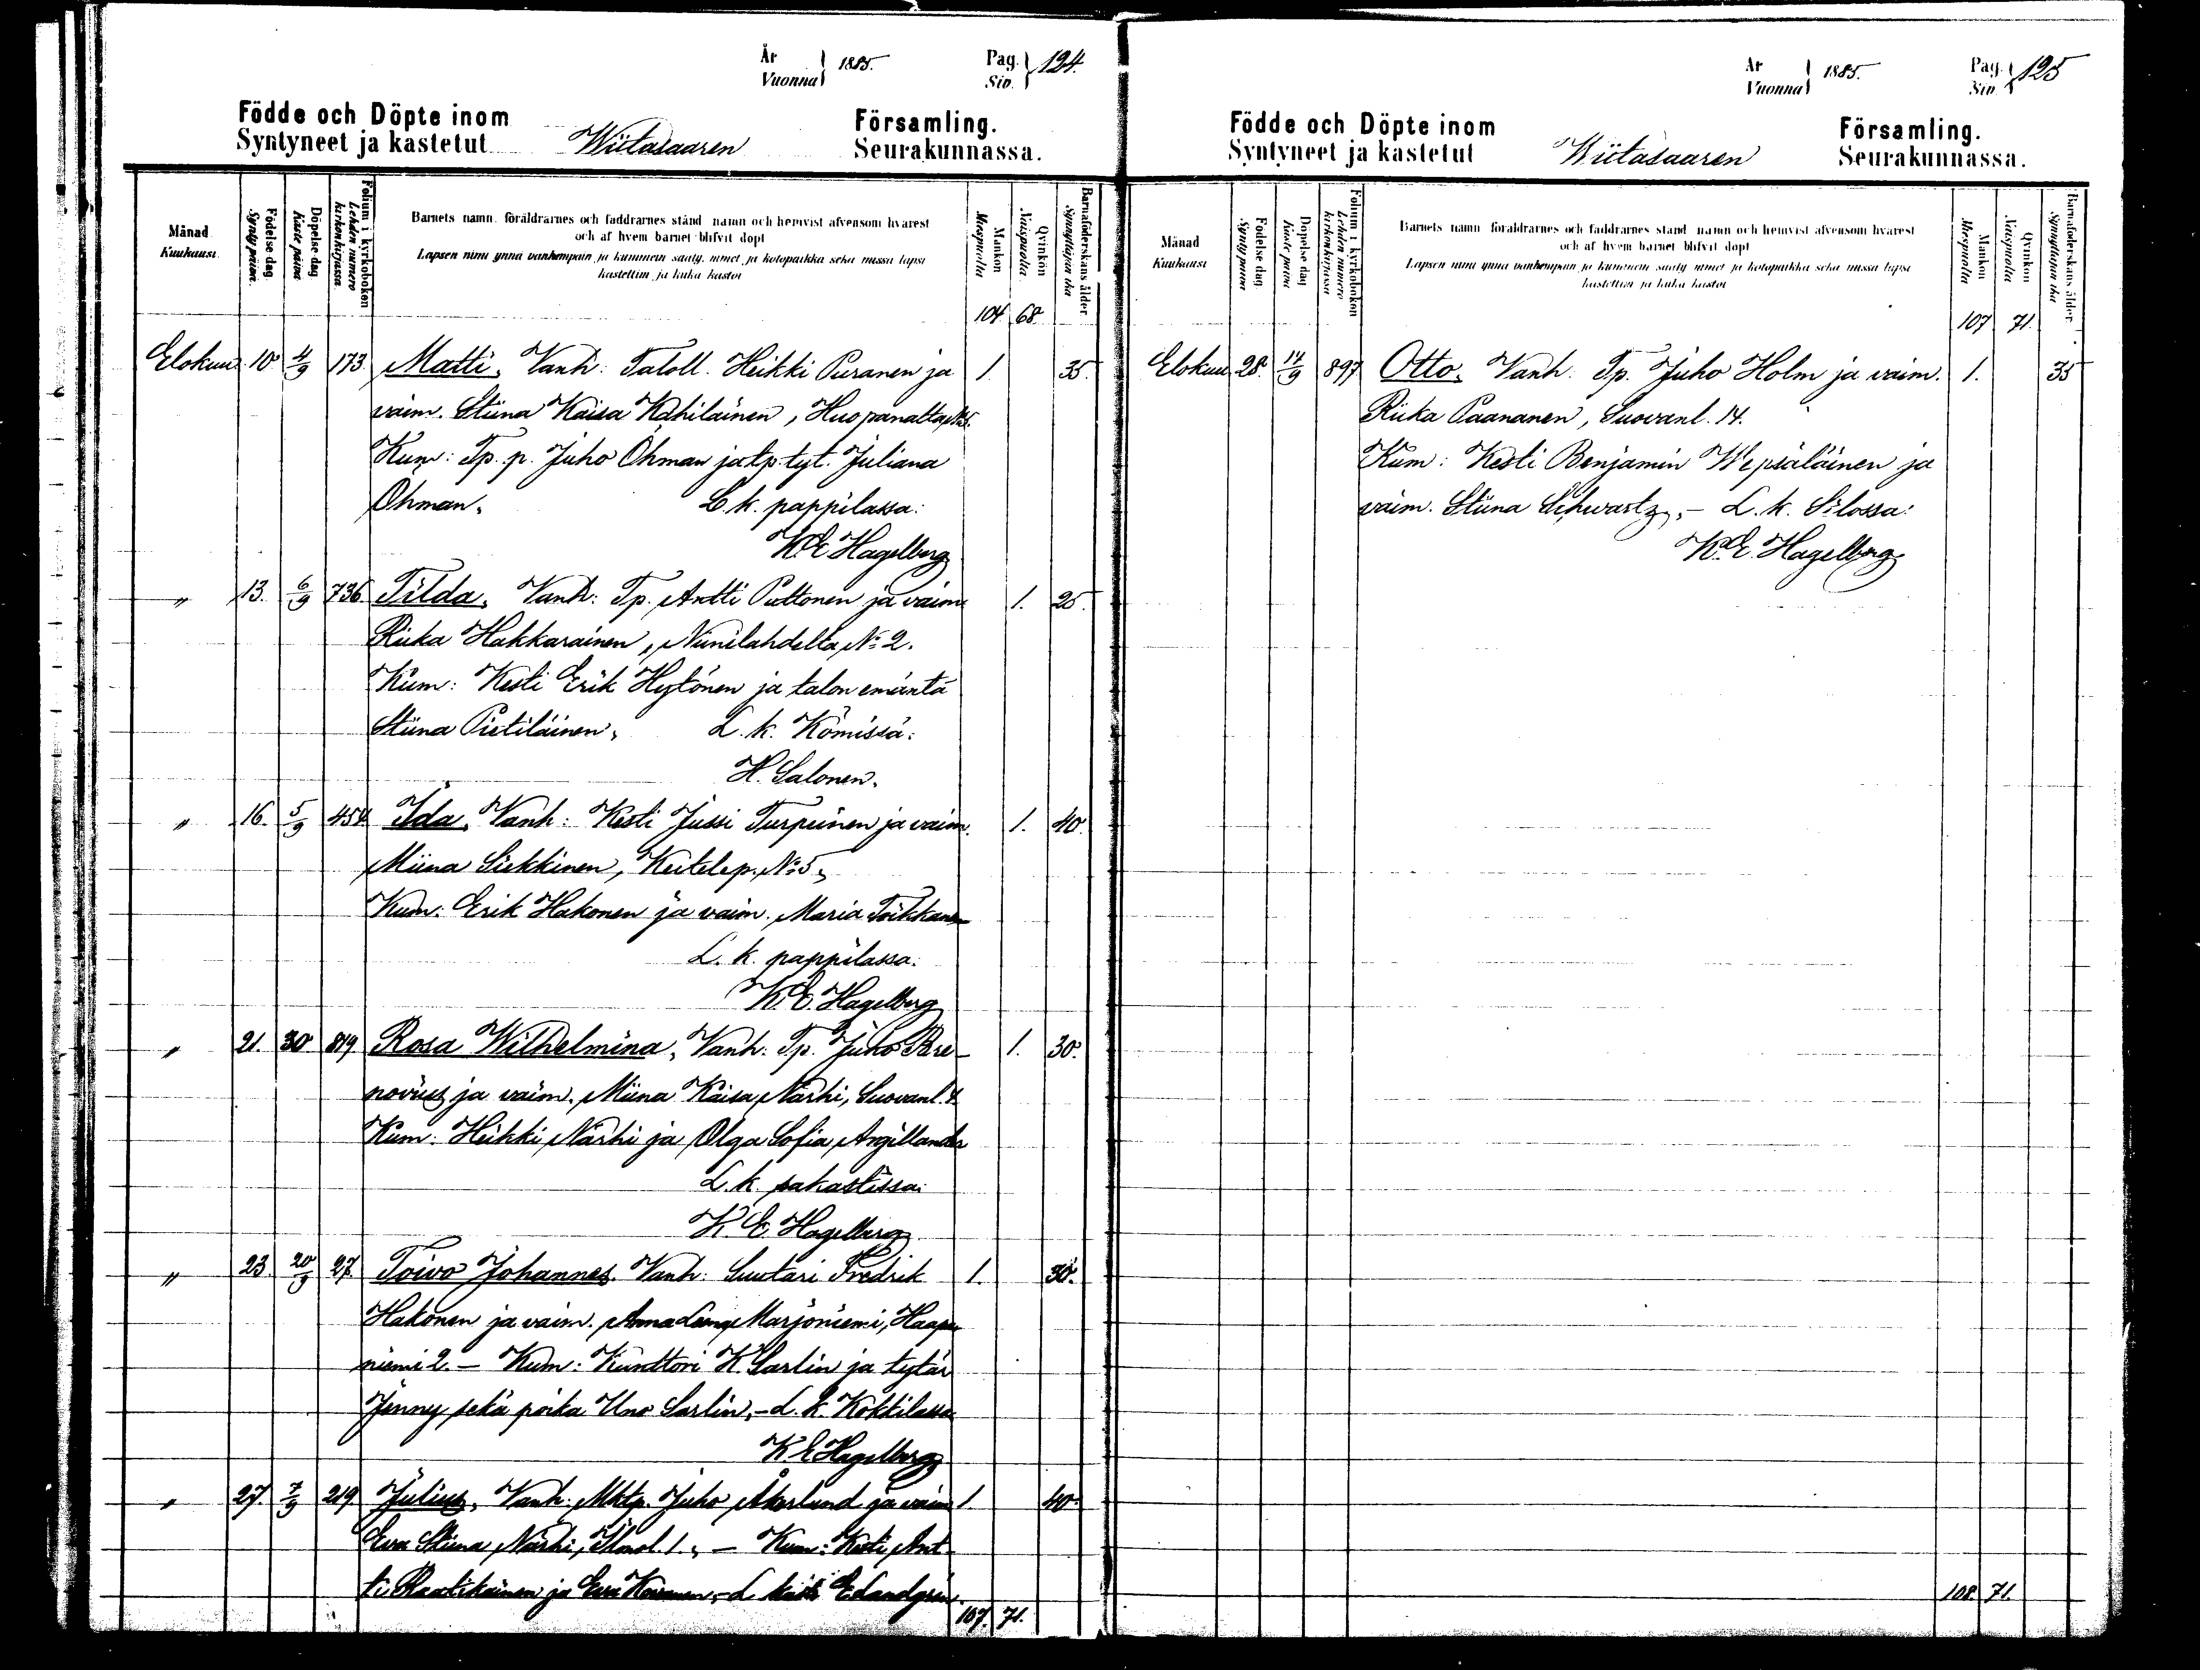 År
Vuonna 1885.
Pag.
Siv. 124.
Födde och Döpte inom
Syntyneet ja kastetut Wiitasaaren
Församling.
Seurakunnassa.
Månad
Kuukausi
Födelse dag.
Synty päivä.
Döpelse dag
Kaste päivä
Folium i kyrkoboken
Lehden numero
kirkonkirjassa
Barnets namn. föräldrarnes och faddrarnes stånd namn och hemvist äfvensom hvarest
och af hvem barnet blifvit döpt
Lapsen nimi ynnä vanhempain ja kummein sääty, nimet ja kotopaikka sekä missä lapsi
kastettiin ja kuka kastoi
Mankön
Miespuolta
Qvinkön
Naispuolta
Barnaföderskans ålder
Synnyttäjän ikä
104 68.
Elokuu 10 4/9 173. Matti, Vanh: Taloll. Heikki Puranen ja 1. 35.
vaim. Stiina Kaisa Kahilainen, Huopanalta,
Kum: Tp. p. Juho Öhman ja tp. tyt. Juliana
Öhman, L. k. pappilassa:
K. E. Hagelberg
" 13. 6/9 736 Tilda, Vanh: Tp. Antti Puttonen ja vaim. 1. 25.
Riika Hakkarainen, Niinilahdelta, No 2.
Kum: Kesti Erik Hytönen ja talon emäntä
Stiina Pietiläinen, L. k. Kömissä:
H. Salonen.
" 16. 5/9 454 Ida, Vanh: Kesti Jussi Turpeinen ja vaim. 1. 40.
Miina Siekkinen, Keitelep. No 5,
Kum: Erik Hakonen ja vaim. Maria Toikkanen
L. k. pappilassa:
K. E. Hagelberg
" 21. 30 819 Rosa Wilhelmina, Vanh: Tp. Juho Bre- 1. 30.
novius ja vaim. Miina Kaisa Närhi, Suovanl.
Kum: Heikki Närhi ja Olga Sofia Argillander
L. k. sakastissa:
K. E. Hagelberg
" 23. 20/9 27. Toivo Johannes. Vanh: Suutari Fredrik 1. 30.
Hakonen ja vaim. Anna Leena Marjoniemi, Haapa
niemi 2. – Kum: Kunttori K. Sarlin ja tytär
Jenny sekä poika Uno Sarlin, – L. k. Kokkilassa
K. E. Hagelberg
" 27. 7/9 219. Julius, Vanh: Mktp. Juho Åkerlund ja vaim. 1. 40.
Eva Stiina Närhi, Ilmol. 1., – Kum: Kesti Ant-
ti Raatikainen ja Eva Kovanen, – L. E. Landgren
107. 71.
År
Vuonna 1885.
Pag.
Siv. 125
Födde och Döpte inom
Syntyneet ja kastetut Wiitasaaren
Församling.
Seurakunnassa.
Månad
Kuukausi
Födelse dag
Synty päivä
Döpelse dag
Kaste päivä
Folium i kyrkoboken
Lehden numero
kirkonkirjassa
Barnets namn föräldrarnes och faddrarnes stånd namn och hemvist äfvensom hvarest
och af hvem barnet blifvit döpt
Lapsen nimi ynnä vanhempain ja kummein sääty nimet ja kotopaikka sekä missä lapsi
kastettiin ja kuka kastoi
Mankön
Miespuolta
Qvinkön
Naispuolta
Barnaföderskans ålder
Synnyttäjän ikä
107 71.
Elokuu 28. 14/9 897 Otto, Vanh. Tp. Juho Holm ja vaim. 1. 35
Riika Paananen, Suovanl. 14.
Kum: Kesti Benjamin Wepsäläinen ja
vaim. Stiina Schwartz, – L. k. Silossa:
K. E. Hagelberg
108. 71.